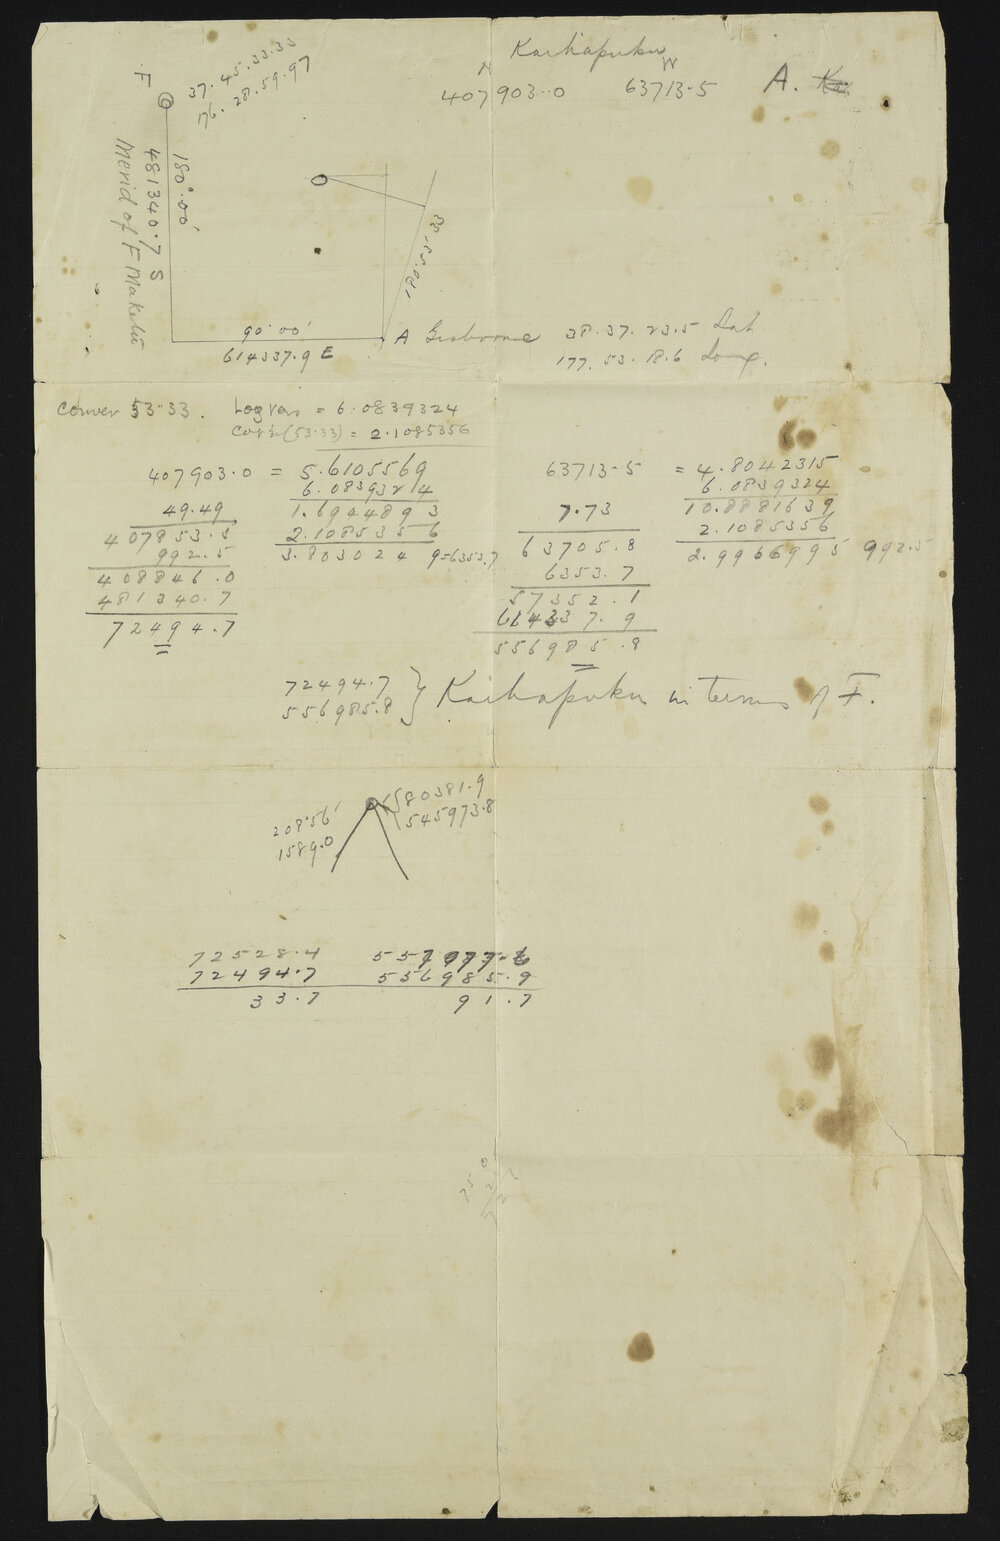 Kaihapuku
N W
407903.0 63713.5 A.
F
37. 45. 33.33
176. 28. 59.97
180°.00'
481340.7 S
Merid of F Maketu
53.33.01
90°00'
614337.9 E
A Gisborne 38. 37. 23.5 Lat
177. 53. 18.6 Long.
Conver 53.33. Log vers = 6.0839324
(53.33) = 2.1085356
407903.0 = 5.6105569
6.0839324
49.49 1.6944893
407853.5 2.1085356
992.5 3.8030249 = 6353.7
408846.0
481340.7
72494.7
63713.5 = 4.8042315
6.0839324
7.73 10.8881639
63705.8 2.1085356
6353.7 2.9966995 992.5
57352.1
614337.9
556985.8
72494.7 } Kaihapuku in terms of F.
556985.8
208°56'
1589.0
580381.9
545973.8
72528.4
72494.7 556985.9
33.7 91.7